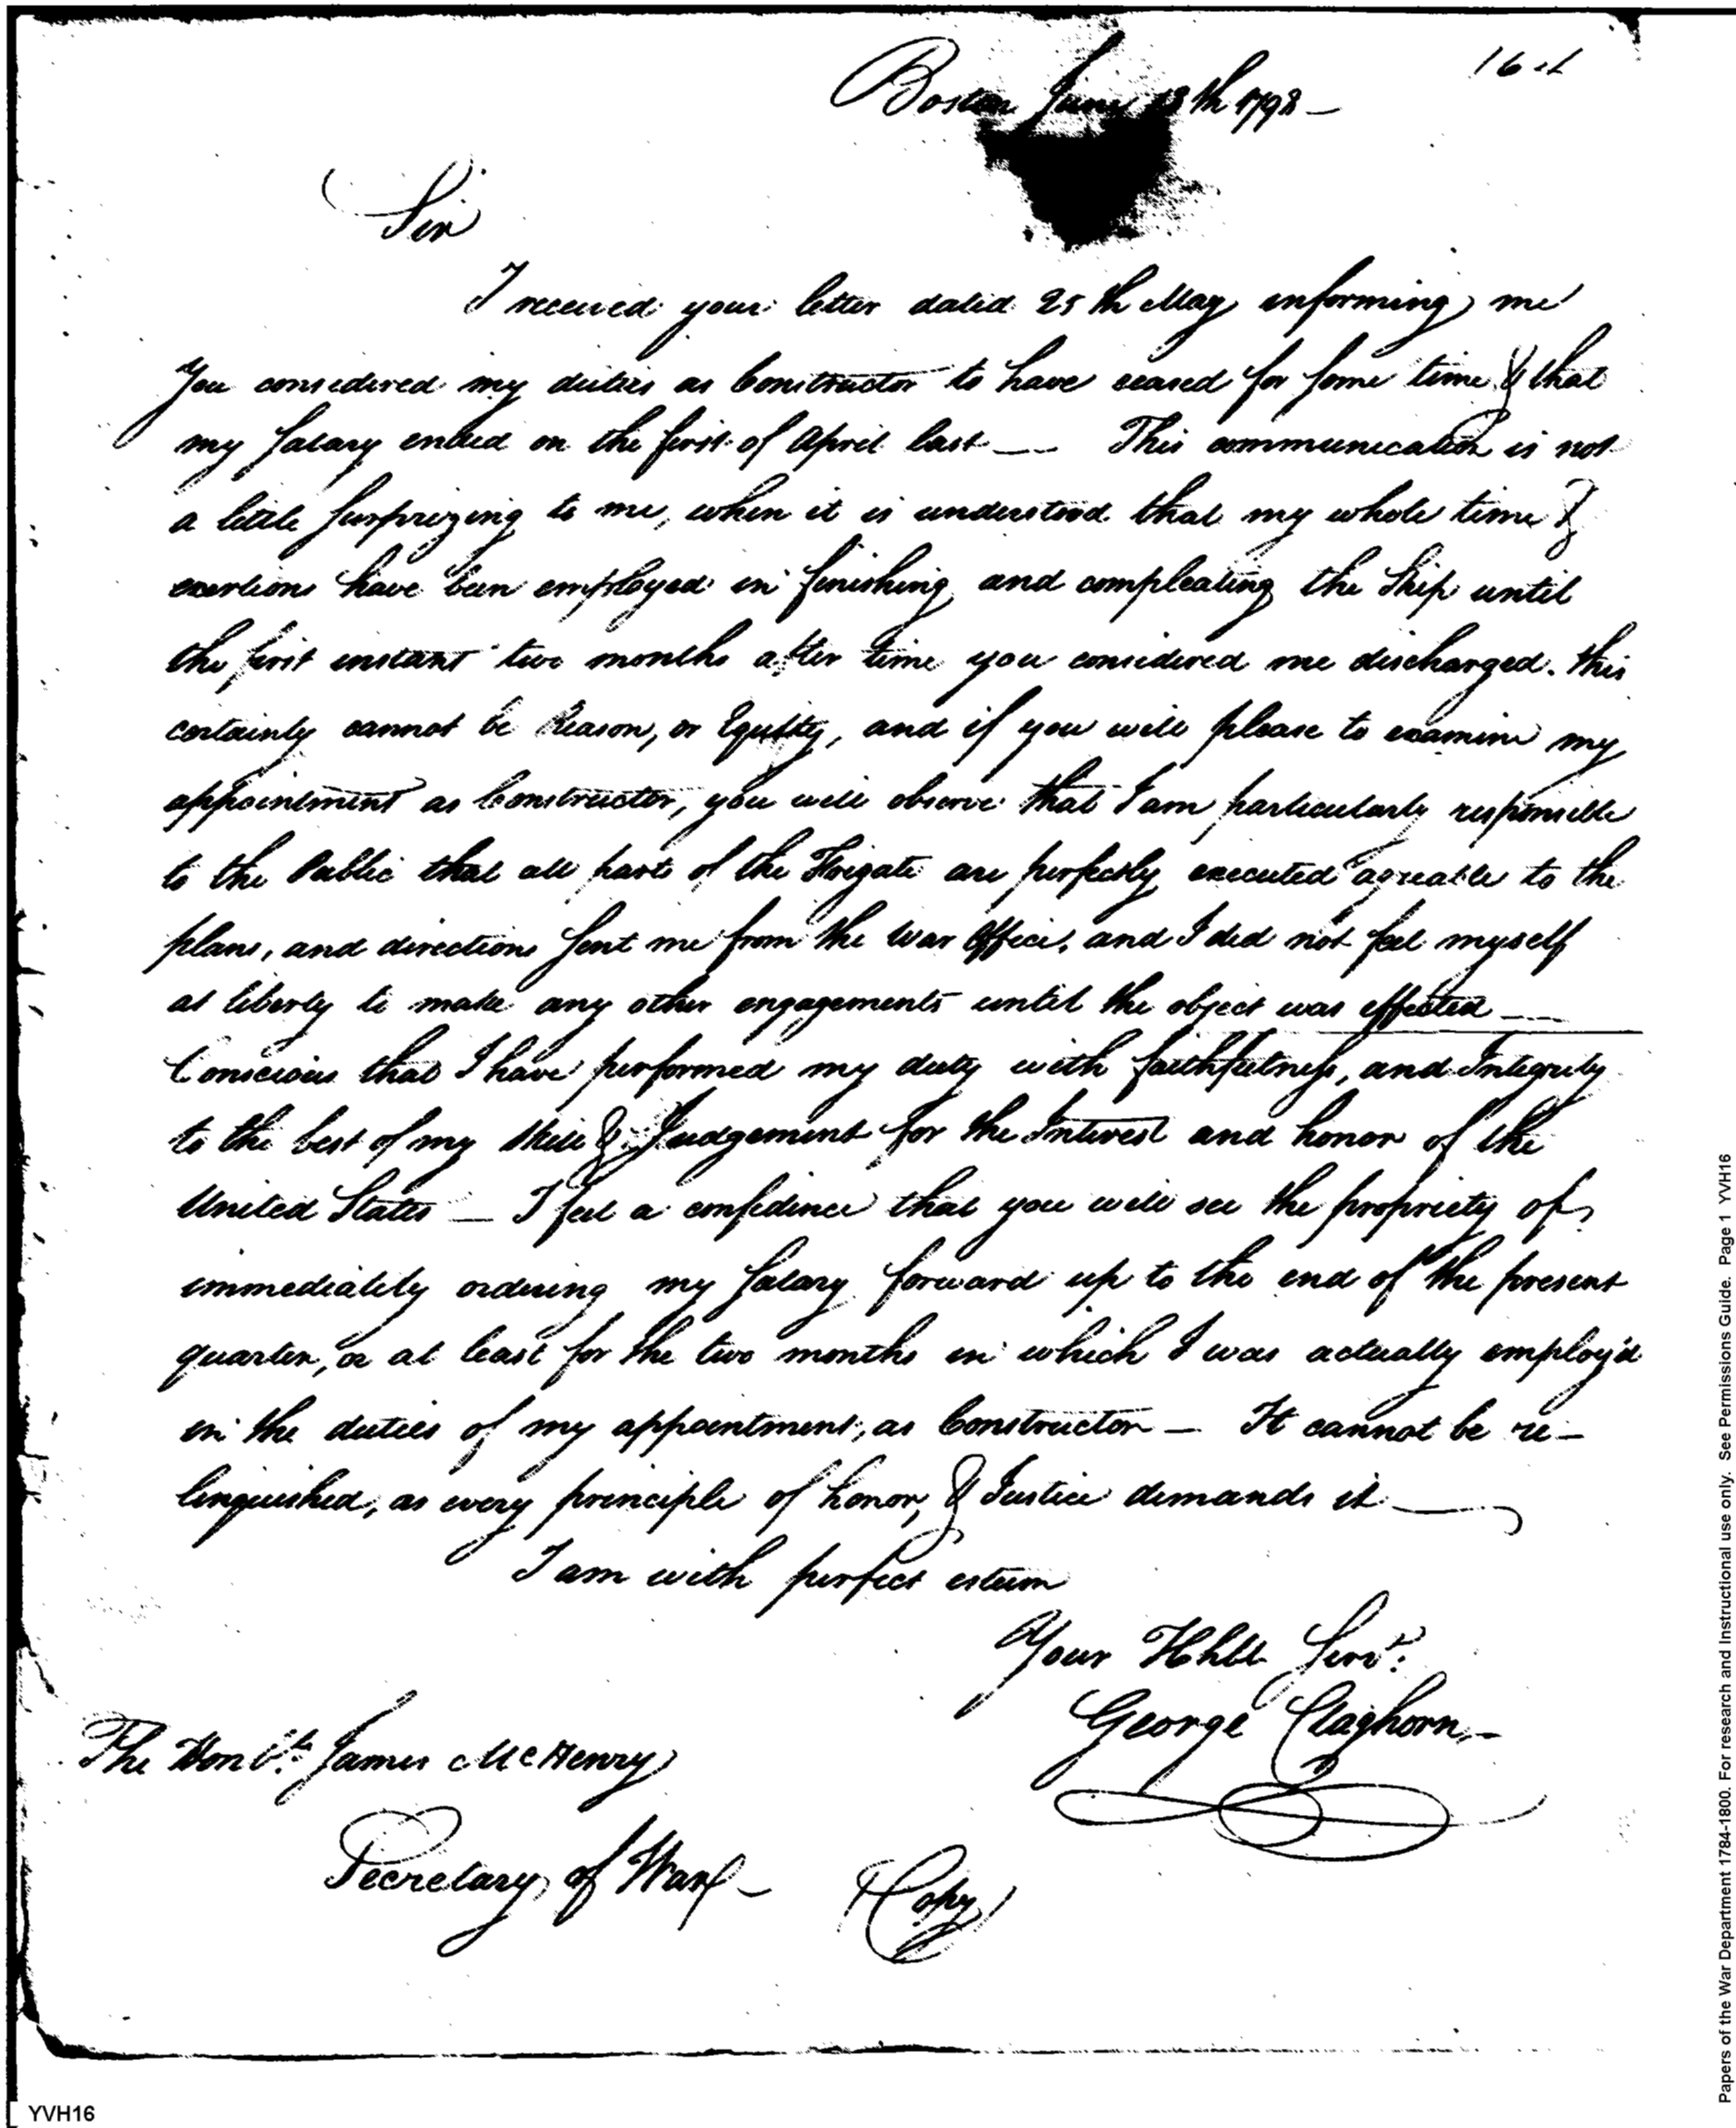 Boston June 18th 1798 —
Sir
I received your letter dated 25th May informing me
You considered my duties as Constructor to have ceased for some time & that
my Salary ended on the first of April last — This communication is not
a little surprizing to me, when it is understood that my whole time &
exertions have been employed in finishing and compleating the Ship until
the first instant two months after time you considered me discharged. this
certainly cannot be Reason, or Equitty, and if you will please to examine my
appointment as Constructor, you will observe that I am particularly responsible
to the Public that all parts of the Frigate are perfectly executed agreable to the
plans, and directions sent me from the War Office, and I did not feel myself
at liberty to make any other engagements until the object was effected —
Conscious that I have performed my duty with faithfulness, and Integrity
to the best of my Skill & Judgement for the Interest and honor of the
United States — I feel a confidence that you will see the propriety of
immediately ordering my Salary forward up to the end of the present
quarter, or at least for the two months in which I was actually employ'd
in the duties of my appointment, as Constructor — It cannot be re-
linquished, as every principle of honor, & Justice demands it —
I am with perfect esteem
Your Hhble Servt.
George Claghorn —
The Honble. James McHenry
Secretary of War —
Copy
Papers of the War Department 1784-1800. For research and Instructional use only. See Permissions Guide. Page 1 YVH16
YVH16